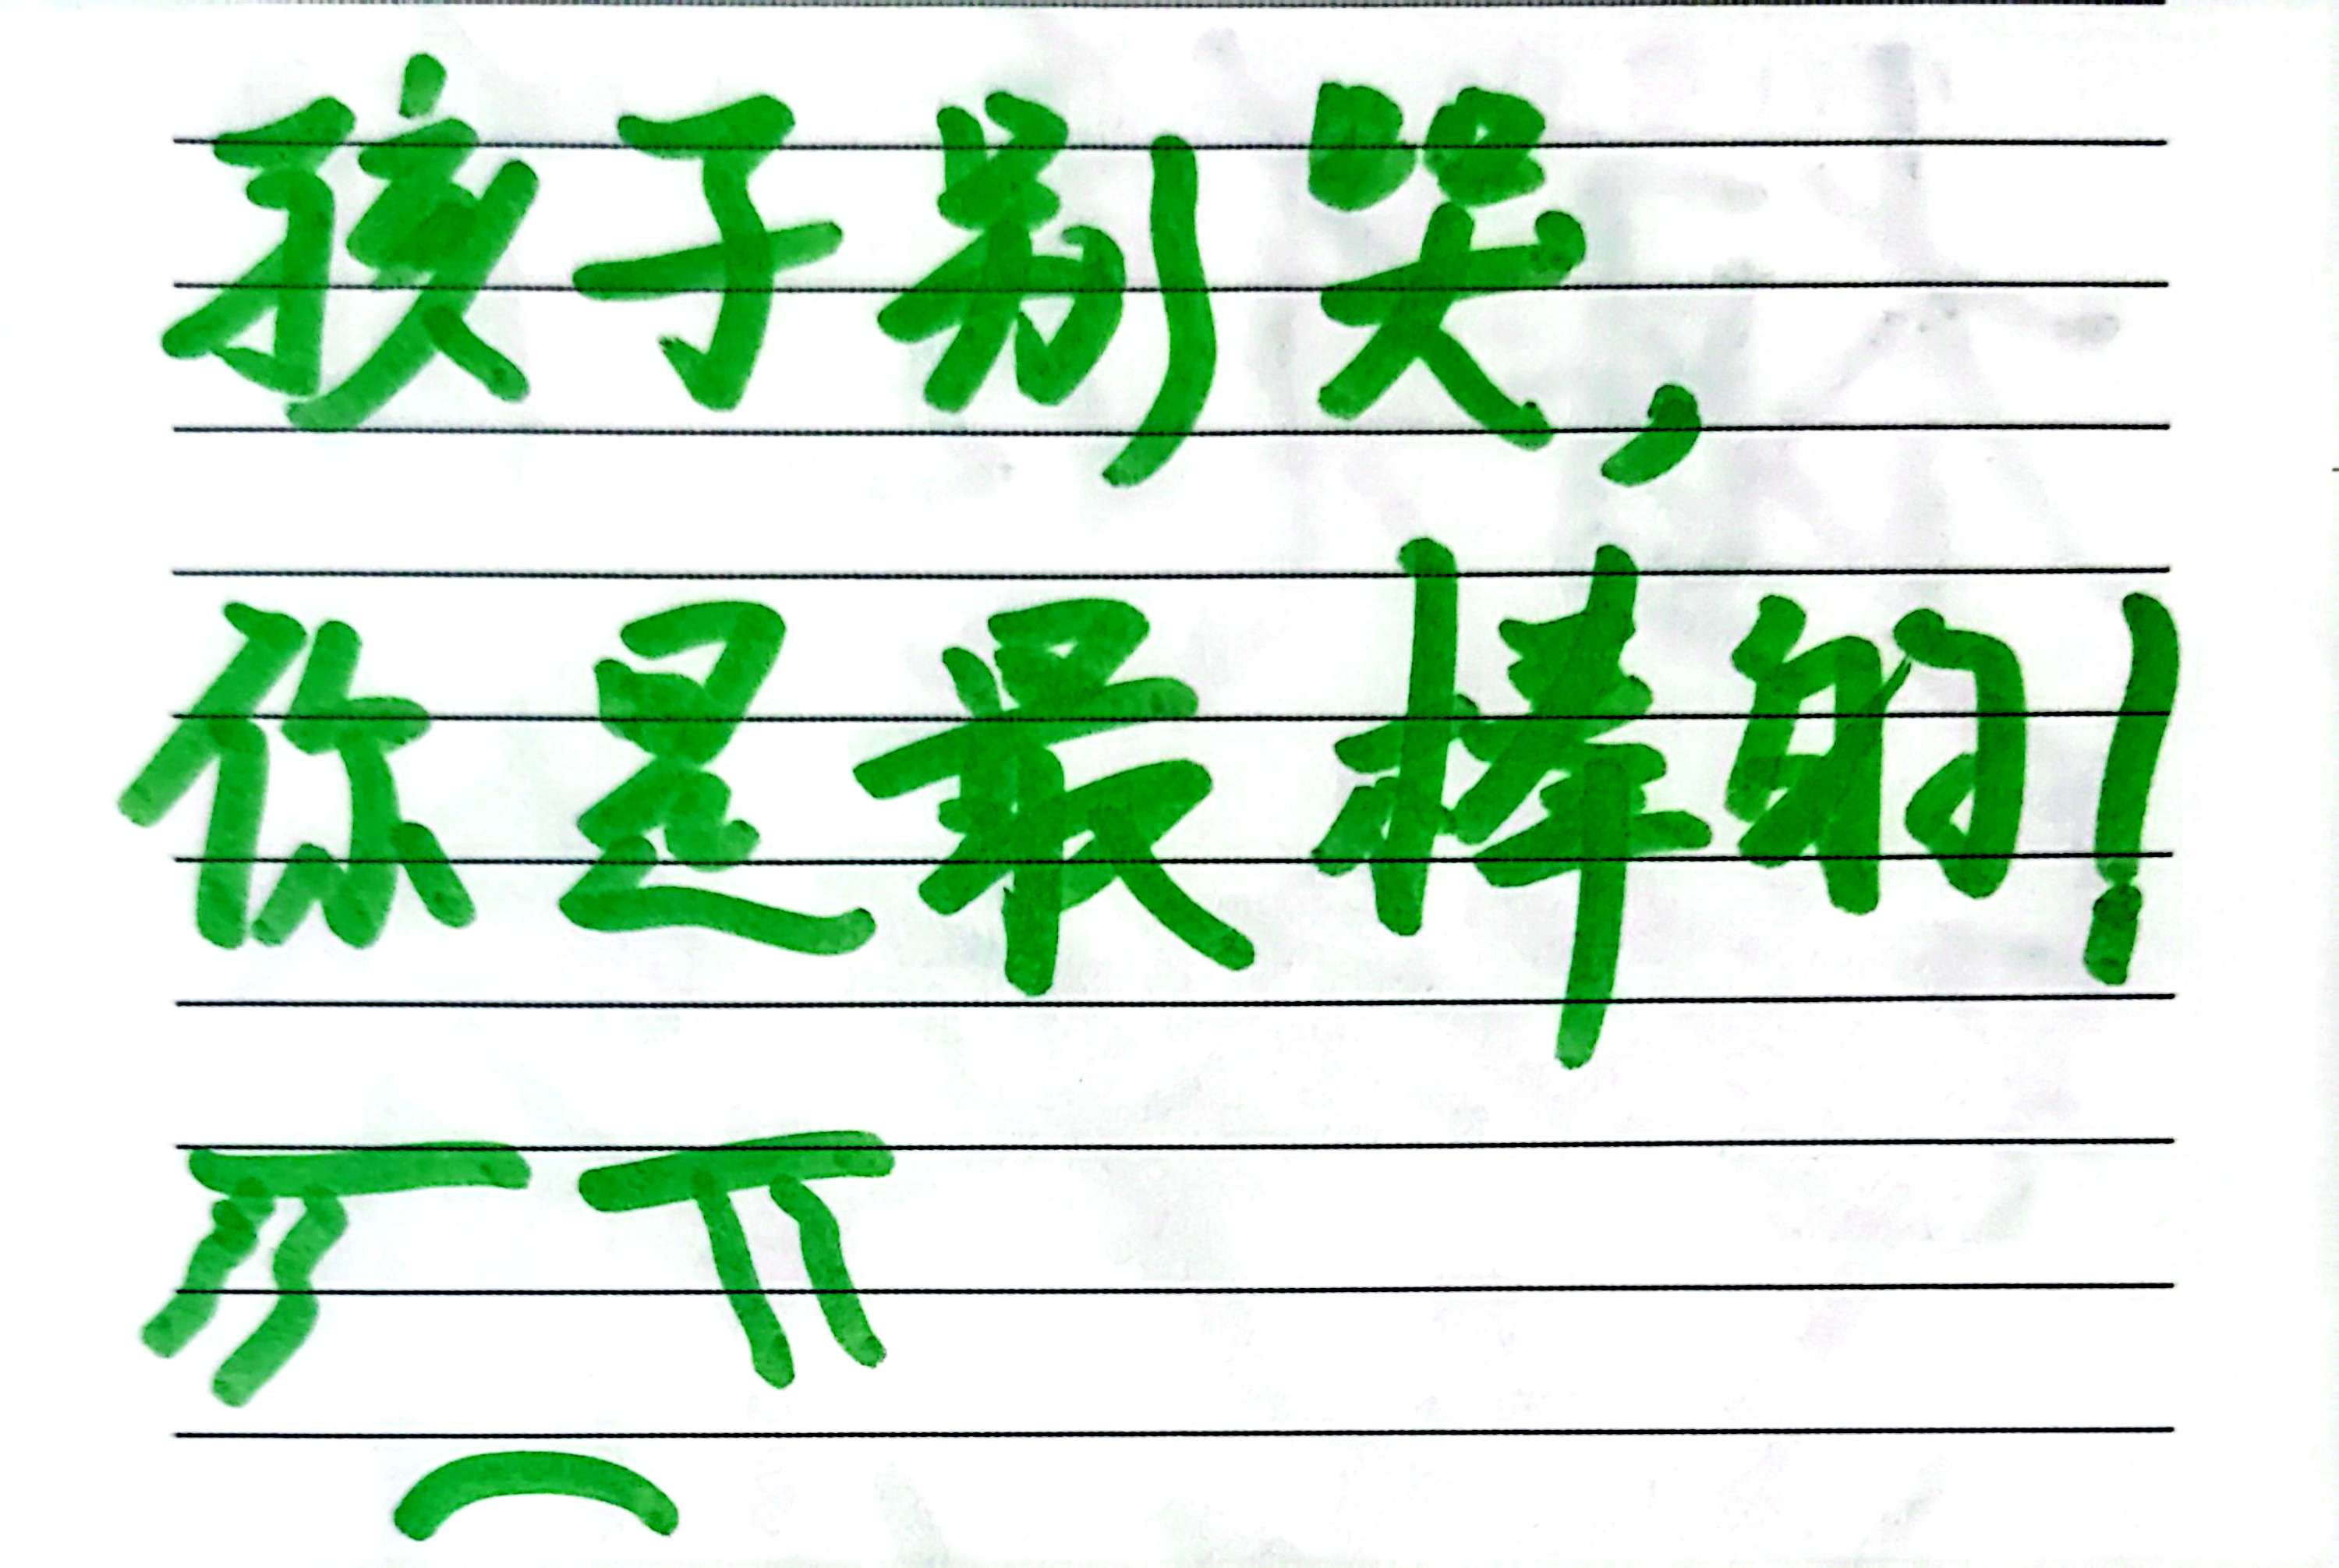 孩子别哭，
你是最棒的！